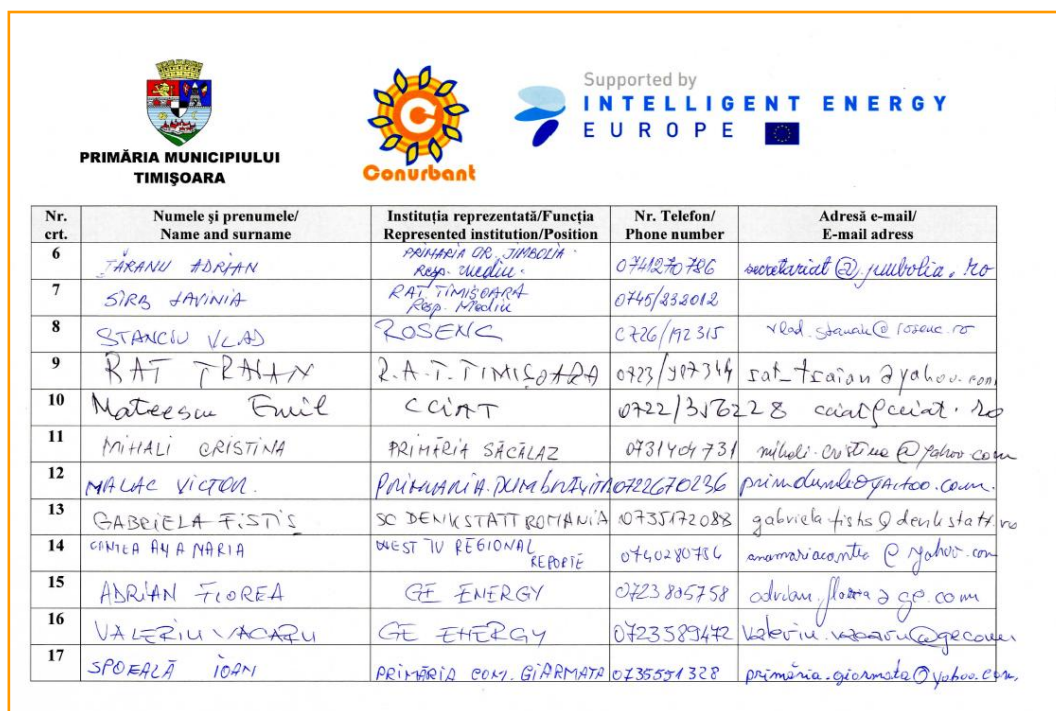 Supported by
INTELLIGENT ENERGY
EUROPE
PRIMĂRIA MUNICIPIULUI
TIMIŞOARA
Conurbant
Nr. crt. Numele şi prenumele/ Name and surname Instituţia reprezentată/Funcţia Represented institution/Position Nr. Telefon/ Phone number Adresă e-mail/ E-mail adress
6 ŢĂRANU ADRIAN PRIMĂRIA OR. JIMBOLIA. Resp. Mediu. 0741270786 secretariat@jimbolia.ro
7 SÎRB LAVINIA RAT TIMIŞOARA Resp. Mediu 0745/232012
8 STANCIU VLAD ROSENC 0726/192315 vlad.stanciu@rosenc.ro
9 RAT TRAIAN R.A.T.TIMIŞOARA rat_traian@yahoo.com
10 Mateescu Emil CCIAT 0722/356228 cciat@cciat.ro
11 MIHALI CRISTINA PRIMĂRIA SĂCĂLAZ 0731404731 mihali.cristina@yahoo.com
12 MALAC VICTOR. 0722670236
13 GABRIELA FISTIS SC DENKSTATT ROMANIA 0735172088 gabriela.fistis@denkstatt.ro
14 ANA MARIA WEST TV REGIONAL 0740280756
15 ADRIAN FLOREA GE ENERGY 0723805758 adrian.florea@ge.com
16 VALERIU VACARU GE ENERGY 0723589472
17 SPOEALĂ IOAN PRIMĂRIA COM. GIARMATA 0735551328 primăria.giarmata@yahoo.com.